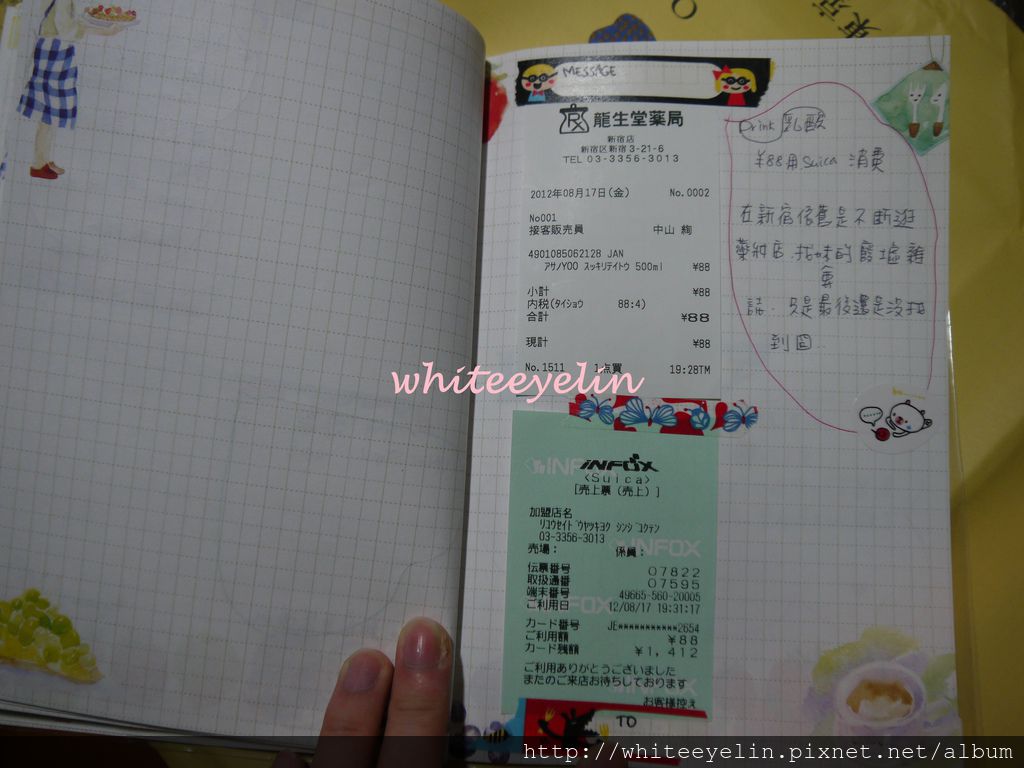 東京
MESSAGE
龍生堂薬局
新宿店
新宿区新宿3-21-6
TEL 03-3356-3013
2012年08月17日(金) No.0002
No001
接客販売員 中山 絢
4901085062128 JAN
アサノYOO スッキリテイトウ 500ml ¥88
小計 ¥88
内税(タイショウ 88:4)
合計 ¥88
現計 ¥88
No.1511 1点買 19:28TM
Drink 乳酸
¥88用Suica 消費
在新宿依舊是不斷逛
藥妝店.找妹的廢墟雜
誌.只是最後還是沒找
到囧
whiteeyelin
INFOX
<Suica>
[売上票(売上)]
加盟店名
リユウセイド ウヤツキヨク シンジ ユクテン
03-3356-3013
売場: 係員:
伝票番号 07822
取扱通番 07595
端末番号 49665-560-20005
ご利用日 12/08/17 19:31:17
カード番号 JE***********2654
ご利用額 ¥88
カード残額 ¥1,412
ご利用ありがとうございました
またのご来店お待ちしております
お客様控え
TO
http://whiteeyelin.pixnet.net/album